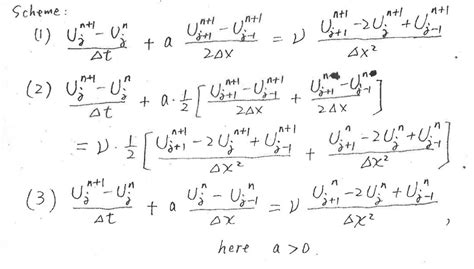 Scheme:
(1) \frac{U_j^{n+1} - U_j^n}{\Delta t} + a \frac{U_{j+1}^{n+1} - U_{j-1}^{n+1}}{2\Delta x} = \nu \frac{U_{j+1}^{n+1} - 2U_j^{n+1} + U_{j-1}^{n+1}}{\Delta x^2}
(2) \frac{U_j^{n+1} - U_j^n}{\Delta t} + a \cdot \frac{1}{2} \left[ \frac{U_{j+1}^{n+1} - U_{j-1}^{n+1}}{2\Delta x} + \frac{U_{j+1}^n - U_{j-1}^n}{2\Delta x} \right]
= \nu \cdot \frac{1}{2} \left[ \frac{U_{j+1}^{n+1} - 2U_j^{n+1} + U_{j-1}^{n+1}}{\Delta x^2} + \frac{U_{j+1}^n - 2U_j^n + U_{j-1}^n}{\Delta x^2} \right].
(3) \frac{U_j^{n+1} - U_j^n}{\Delta t} + a \frac{U_j^n - U_{j-1}^n}{\Delta x} = \nu \frac{U_{j+1}^n - 2U_j^n + U_{j-1}^n}{\Delta x^2},
here a > 0.